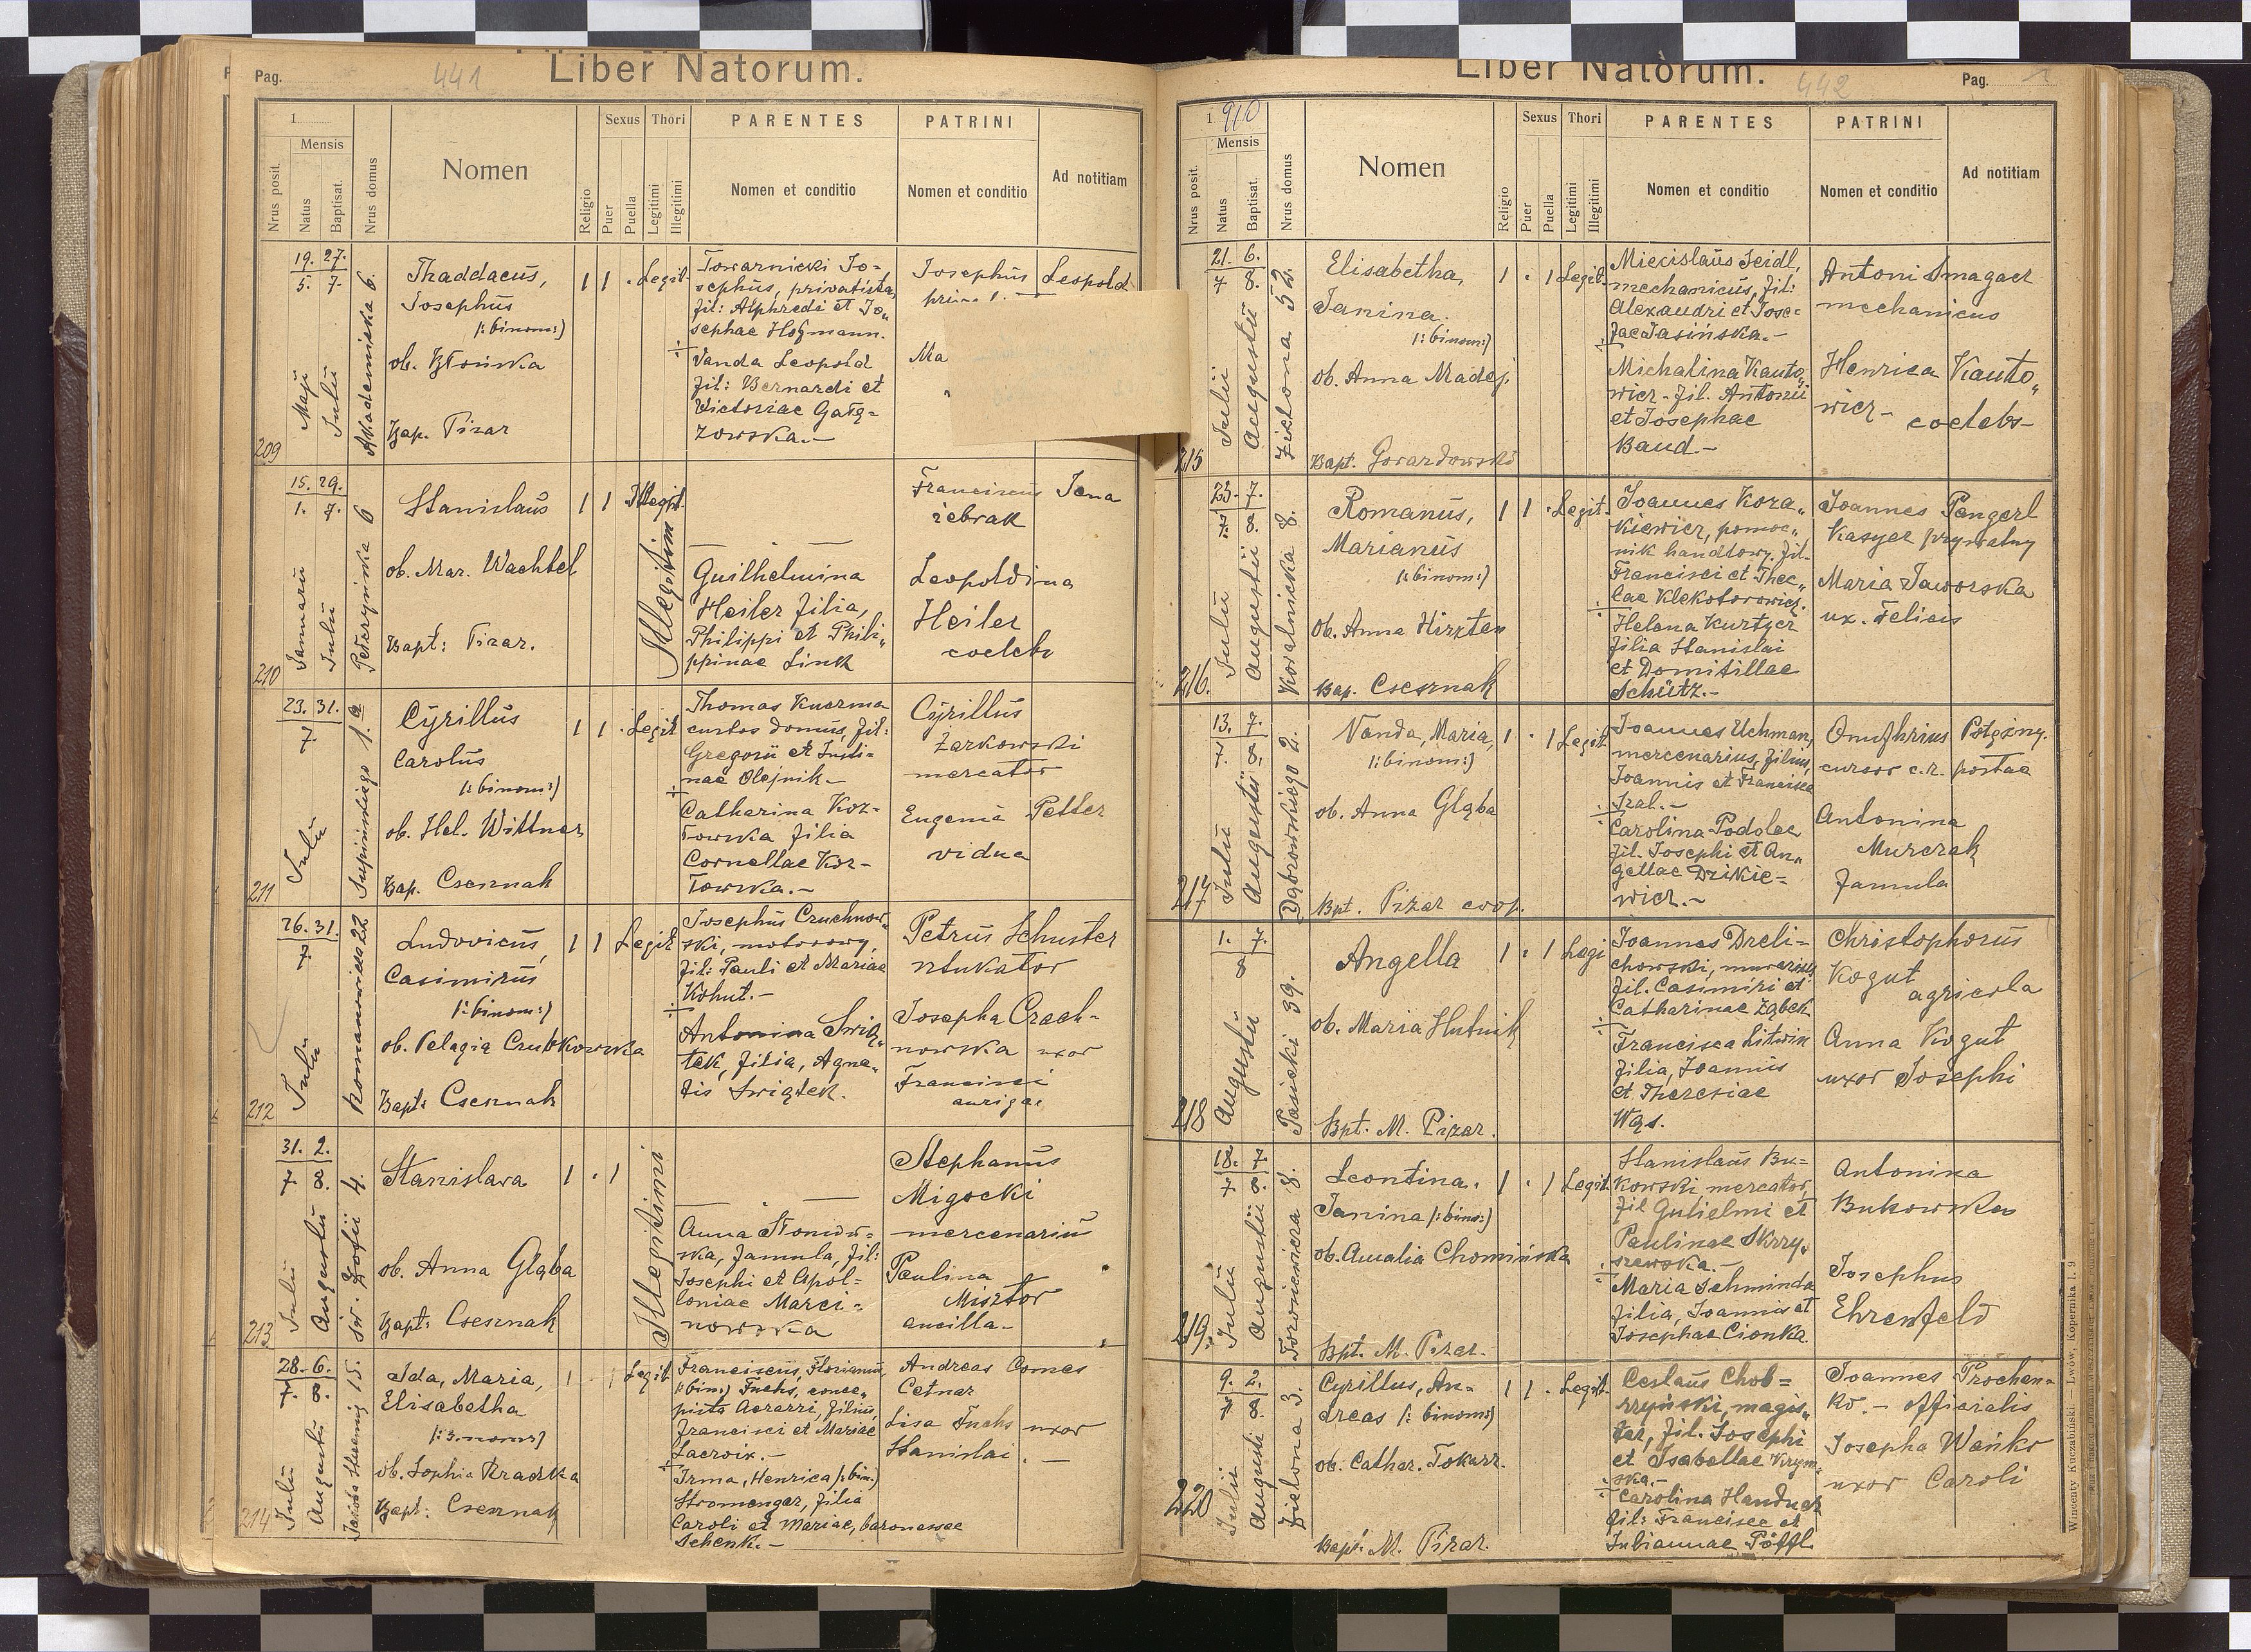 Pag. 441 Liber Natorum.
1
Mensis
Nrus posit.
Natus
Baptisat.
Nrus domus
Nomen
Religio
Sexus
Puer
Puella
Thori
Legitimi
Illegitimi
PARENTES
Nomen et conditio
PATRINI
Nomen et conditio
Ad notitiam
209
19. 27.
5. 7.
Maji
Julii
Akademicka 6.
Thaddaeus,
Josephus
(: binom:)
ob. Błońska
Bap. Pizar
1 1 . Legit.
Towarnicki Jo-
sephus, privatista,
fil: Alphredi et Jo„
sephae Hofmann.
÷
Vanda Leopold
fil: Bernardi et
Victoriae Gałę-
zowska.-
Josephus Leopold
Ma
210
15. 29.
1. 7.
Januarii
Julii
6
Stanislaus
ob. Mar. Wachtel
Bapt: Pizar.
1 1
Illegitimi
Guilhelmina
Heiler filia,
Philippi et Phili„
ppinae Link
Franciscus Jana
żebrak
Leopoldina
Heiler
coelebs
211
23. 31.
7.
Julii
Supińskiego 1. a
Cyrillus
Carolus
(: binom:)
ob. Hel. Wittner
Bap. Csesznak
1 1 . Legit
Thomas Kuczma
custos domus, fil:
Gregorii et Justi-
nae Olejnik.-
÷
Catharina Koz-
łowska filia
Cornellae Koz-
łowska.-
Cyrillus
Żarkowski
mercator
Eugenia Petter
vidua
212
26. 31.
7
Julii
Romanowicza 22
Ludovicus,
Casimirus
(: binom:)
ob. Pelagia Czubkowska
Bapt: Csesznak
1 1 Legit
Josephus Czuchnow„
ski, motorowy,
fil: Pauli et Mariae
Kohut.-
÷
Antonina Świą„
tek, filia, Agne„
tis Świątek.
Petrus Schuster
stukator
Josepha Czach-
nowska uxor
Francisci
aurigae
213
31. 2.
7 8.
Julii
Augustii
św. Zofii 4.
Stanislava
ob. Anna Głąba
Bapt: Csesznak
1 . 1
Illegitimi
Anna
ska, famula, fil:
Josephi et Apol-
loniae Marci-
nowska
Stephanus
Migocki
mercenarius
Paulina
Misztor
ancilla-
214
28. 6.
7. 8.
Julii
Augusti
15.
Ida, Maria,
Elisabetha
(: 3. nom:)
ob. Sophia Kradzka
Bapt: Csesznak
1 . 1 Legit
Franciscus, Florianus
(: bin:) Fuchs, conce„
pista Aerarri, filius,
Francisci et Mariae
Lacroix.-
÷
Irma, Henrica (: bin:)
Stromenger, filia
Caroli et Mariae, baronessae
Schenk.-
Andreas Comes
Cetnar
Lisa Fuchs uxor
Stanislai . -
Liber Natorum. 442 Pag.
1910
Mensis
Nrus posit.
Natus
Baptisat.
Nrus domus
Nomen
Religio
Sexus
Puer
Puella
Thori
Legitimi
Illegitimi
PARENTES
Nomen et conditio
PATRINI
Nomen et conditio
Ad notitiam
215
21. 6.
7 8.
Julii
Augustii
Zielona 52.
Elisabetha,
Janina.
(: binom:)
ob. Anna Madej.
Bapt. Gorazdowski
1 . 1 Legit.
Miecislaus Seidl,
mechanicus, fil:
Alexandri et Jose-
fae Jasińska.-
÷
Michalina Kauto„
wicz - fil. Antonii
et Josephae
Baud.-
Antoni Smagacz
mechanicus
Henrica Kauto„
wicz- coelebs-
216.
23. 7.
7. 8.
Julii
Augustii
8.
Romanus,
Marianus
(: binom:)
ob. Anna Hirzten
Bap. Csesznak
1 1 . Legit.
Joannes Koza„
kiewicz, pomoc„
nik handlowy. fil.
Francisci et Thec„
lae Klekotorowicz.
÷
Helena Kurtzer
filia Stanislai
et Domitillae
Schütz.-
Joannes Pengerl
Kasyer prywatny
Maria Jaworska
ux. Felicis
217
13. 7.
7. 8.
Julii
Augustii
Dąbrowskiego 2.
Vanda, Maria,
(: binom:)
ob. Anna Głąba
Bpt. Pizar coop.
1 . 1 Legit
Joannes Uchman,
mercenarius, filius,
Joannis et Francisca
Tral.-
÷
Carolina Podolec
fil. Josephi et An„
gellae Dzikie-
wicz.-
Onufhrius Potężny.
cursor c.r. postae
Antonina
Murczak
famula
218
1. 7.
8
Augustii
Pasieki 39.
Angella
ob. Maria Hutnik
Bpt. M. Pizar.
1 . 1 Legi
Joannes Dreli-
chowski, murarius
fil. Casimiri et
Catharinae Ząbek
÷
Francisca Litwin
filia, Joannis
et Theresiae
Wąs.
Christophorus
Kogut
agricola
Anna Kogut
uxor Josephi
219.
18. 7
7 8.
Julii
Augustii
Torosiewicza 8.
Leontina.
Janina (: bino:)
ob. Amalia Chomińska
Bpt. M. Pizar.
1 . 1 Legit
Stanislaus Bu-
kowski, mercator,
fil Gulielmi et
Paulinae Skrzy„
szewska.-
÷
Maria Schminda
filia, Joannis et
Josephae Cionka.
Antonina
Bukowska
Josephus
Ehrenfeld
220
9. 2.
7 8.
Julii
Augusti
Zielona 3.
Cyrillus, An-
dreas (: binom:)
ob. Cathar. Tokarz.
Bapt. M. Pizar.
1 1 . Legit.
Ceslaus Chob-
rzyński, magis„
ter, fil. Josephi
et Isabellae Krym„
ska.-
÷
Carolina Handner
fil: Francisce et
Juliannae Pöffl.
Joannes Prochen-
ko. - officialis
Josepha Wańko
uxor Caroli
Wincenty Kuczabiński. — Lwów, Kopernika l. 9